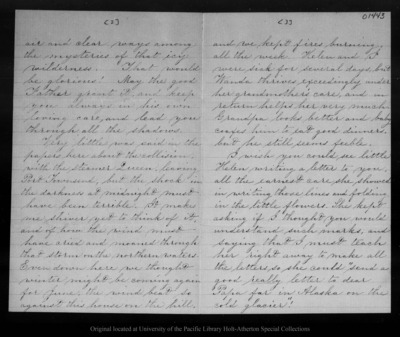 (2)
air and clear ways among
the mysteries of that icy
wilderness. That would
be glorious! May the good
Father grant it and keep
you always in his own
loving care, and lead you
through all the shadows.
Very little was said in the
papers here about the collision
with the steamer leaving
Port Townsend, but the shock in
the darkness at midnight must
have been terrible. It makes
me shiver yet to think of it,
and of how the wind must
have cried and moaned through
that storm on the northern waters.
Even down here we thought
winter might be coming again
for June, the wind beat so
against this house on the hill,
(3)
01443
and we kept fires burning
all the week. Helen and I
were sick for several days, but
Wanda thrives exceedingly under
her grandmother's care, and in
return helps her very much.
Grandpa looks better and baby
coaxes him to eat good dinners,
but he still seems feeble.
I wish you could see little
Helen writing a letter to you,
all the earnest care she showed
in writing those lines and folding
in the little flowers. She kept
asking if I thought you would
understand such marks, and
saying that I must teach
her right away to make all
the letters, so she could "send a
good really letter to dear
Papa far in Alaska on the
cold glacier"!
Original located at University of the Pacific Library Holt-Atherton Special Collections